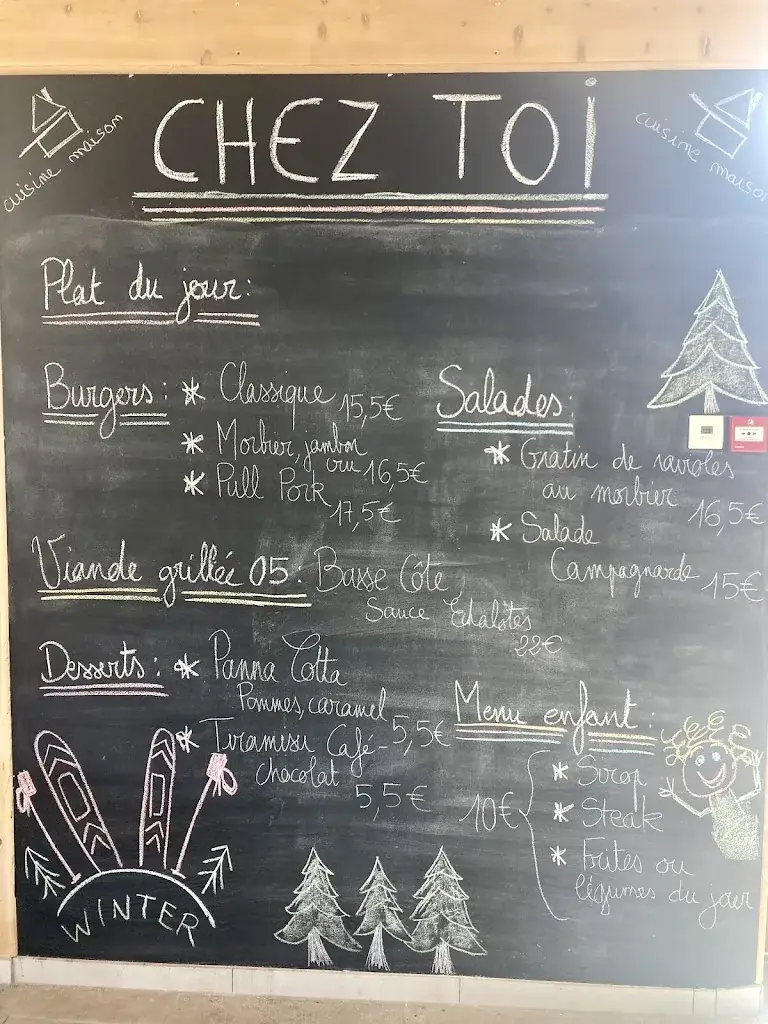 CHEZ TOI
cuisine maison
cuisine maison
Plat du jour:
Burgers: * Classique 15,5€
* Morbier, jambon
cru 16,5€
* Pull Pork
17,5€
Salades:
* Gratin de ravioles
au morbier 16,5€
* Salade
Campagnarde 15€
Viande grillée 05: Basse Côte,
Sauce Echalotes
22€
Desserts: * Panna Cotta
Pommes, caramel 5,5€
* Tiramisu Café-
chocolat
5,5€
Menu enfant:
10€
* Sirop
* Steak
* Frites ou
légumes du jour
WINTER